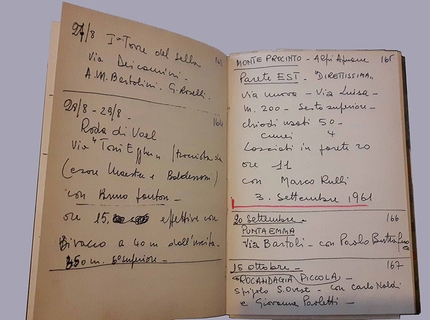 27/8 Iª Torre del Sella 163
Via Dei camini -
A.M. Bartolini - G. Roselli -
28/8 - 29/8 - 164
Roda di Vael
Via "Toni Egger
(
con Bruno
ore 15, effettive con
Bivacco a 40 m dall'uscita.
350 m. 6° superiore -
MONTE PROCINTO - Alpi Apuane 165
Parete EST - "DIRETTISSIMA"
via nuova - Via Luisa -
m. 200 - Sesto superiore -
chiodi usati 50 -
cunei 4
Lasciati in parete 20
ore 11
con Marco Rulli
3. Settembre 1961
20 Settembre - 166
PUNTA EMMA
Via Bartoli - con Paolo
15 ottobre - 167
ROCANDAGIA PICCOLA -
Spigolo S. Ovest - con Carlo Naldi
e Giovanna Paoletti -